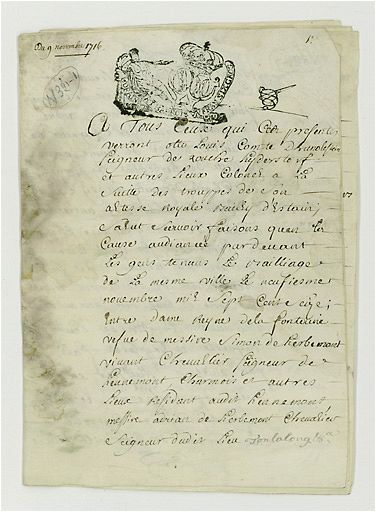 Du 9 novembre 1716
A Tous Ceux qui Ces presentes
verront otto Louis Comte
Seigneur de
et autres Lieux Colonel a La
Suitte des trouppes de Son
altesse Royale Bailly d'Estain
Salut Scavoir faisons quen La
Cause audiancée pardevant
Les gens tenans Le Bailliage
de La mesme ville Le neufiesme
novembre mil Sept Cent Seize
Entre Dame Reyne dela fontaine
vefue de messire Simon de Kerbemont
vivant Chevallier Seigneur de
Charmois et autres
Lieux Residant audit
messire adrian de Kerbemont Chevallier
Seigneur dudit Lieu